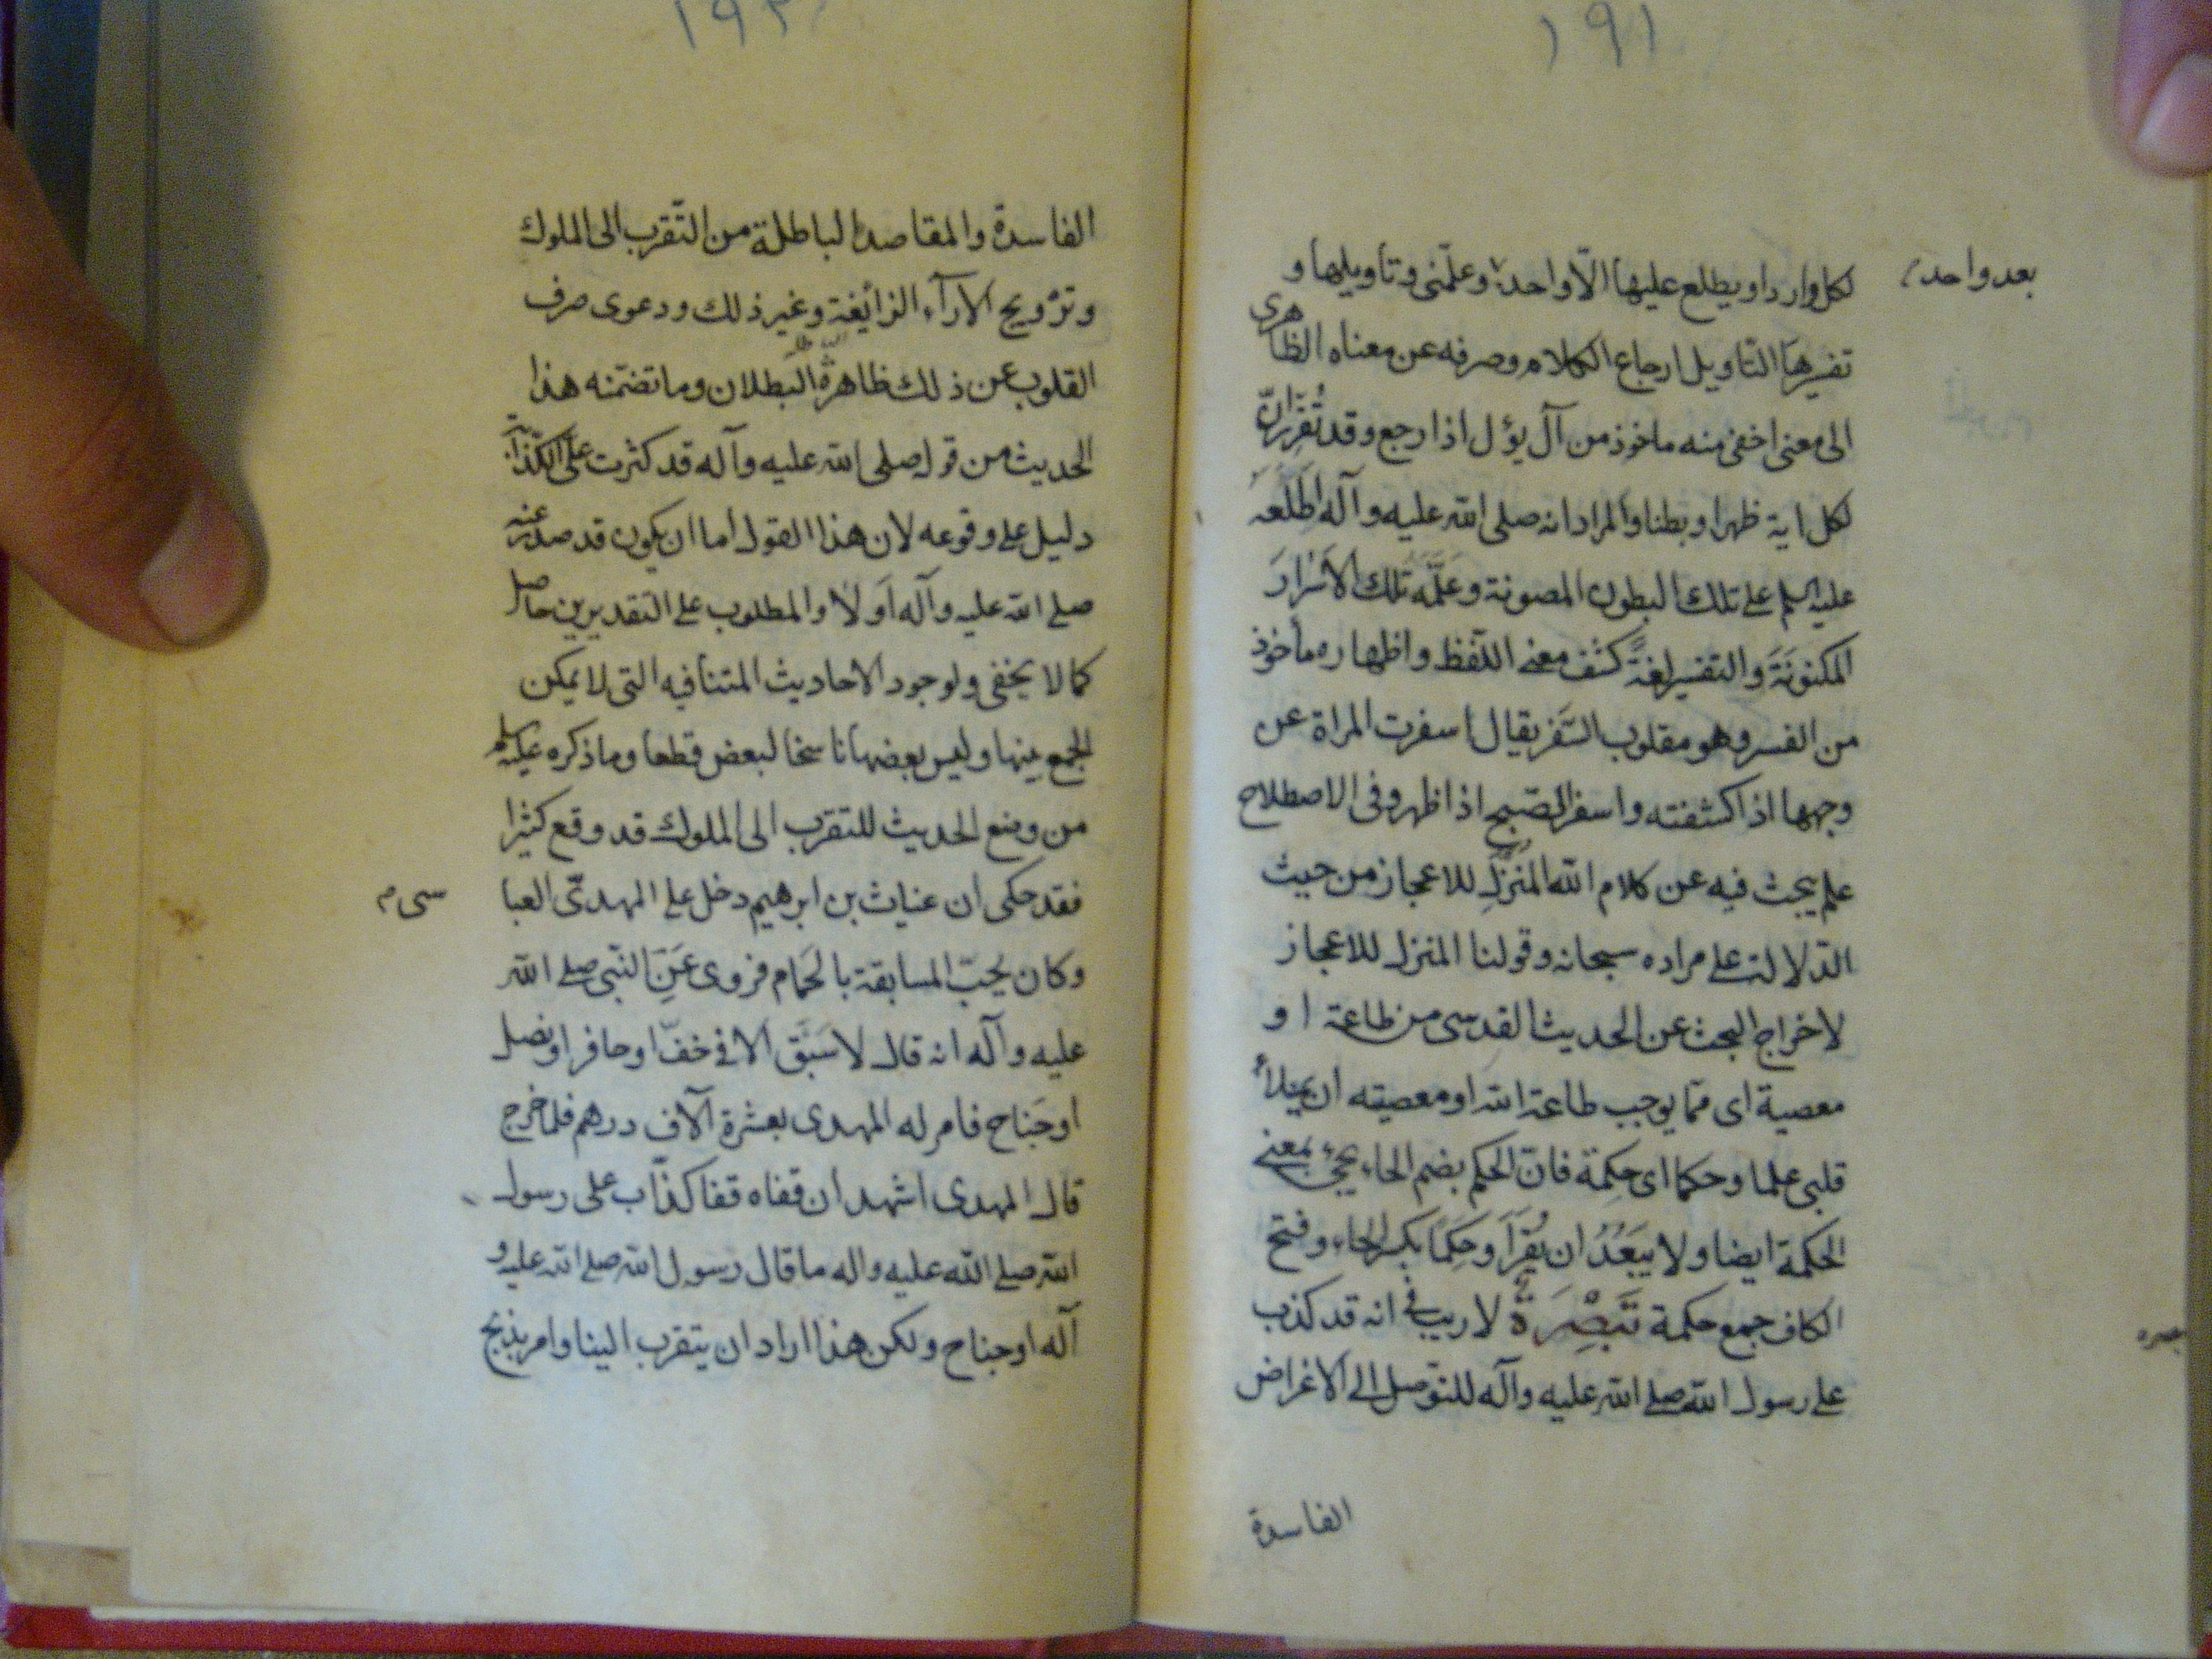 ١٩١
لكل وارد او يطلع عليها الا واحد وعلمنى وتاويلها و
بعد واحد
تفسيرها التاويل ارجاع الكلام وصرفه عن معناه الظاهرى
الى معنى اخفى منه ماخوذ من آل يؤل اذا رجع وقد تقرر ان
لكل اية ظهرا وبطنا والمراد انه صلى الله عليه وآله اطلعه
عليه السلم على تلك البطون المصونة وعلمه تلك الاسرار
المكنونة والتفسير لغة كشف معنى اللفظ واظهاره ماخوذ
من الفسر وهو مقلوب السفر يقال اسفرت المراة عن
وجهها اذا كشفته واسفر الصبح اذا ظهر وفى الاصطلاح
علم يبحث فيه عن كلام الله المنزل للاعجاز من حيث
الدلالة على مراده سبحانه وقولنا المنزل للاعجاز
لاخراج البحث عن الحديث القدسى من طاعة او
معصية اى مما يوجب طاعة الله او معصيته ان يملأ
قلبى علما وحكما اى حكمة فان الحكم بضم الحاء يجئ بمعنى
الحكمة ايضا ولا يبعد ان يقرأ وحكما بكسر الحاء وفتح
الكاف جمع حكمة تبصرة لا ريب فى انه قد كذب
على رسول الله صلى الله عليه وآله للتوصل الى الاغراض
الفاسدة
١٩٢
الفاسدة والمقاصد الباطلة من التقرب الى الملوك
وترويج الآراء الزائغة وغير ذلك ودعوى صرف
القلوب عن ذلك ظاهرة البطلان وما تضمنه هذا
الحديث من قوله صلى الله عليه وآله قد كثرت على الكذابة
دليل على وقوعه لان هذا القول اما ان يكون قد صدر عنه
صلى الله عليه وآله او لا والمطلوب على التقديرين حاصل
كما لا يخفى ولوجود الاحاديث المتنافيه التى لا يمكن
الجمع بينها وليس بعضها ناسخا لبعض قطعا وما ذكره عليه السلم
من وضع الحديث للتقرب الى الملوك قد وقع كثيرا
فقد حكى ان غياث بن ابرهيم دخل على المهدى العبا
سى م
وكان يحب المسابقة بالحمام فروى عن النبى صلى الله
عليه وآله انه قال لا سبق الا فى خف او حافر او نصل
او جناح فامر له المهدى بعشرة آلاف درهم فلما خرج
قال المهدى اشهد ان قفاه قفا كذاب على رسول
الله صلى الله عليه واله ما قال رسول الله صلى الله عليه و
آله او جناح ولكن هذا اراد ان يتقرب الينا وامر بذبح